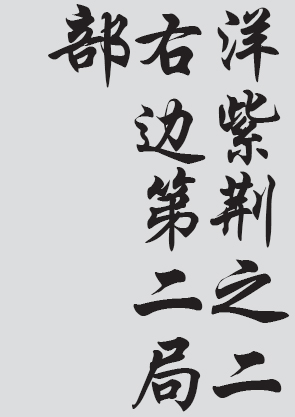 洋紫荆之二
右边第二局
部